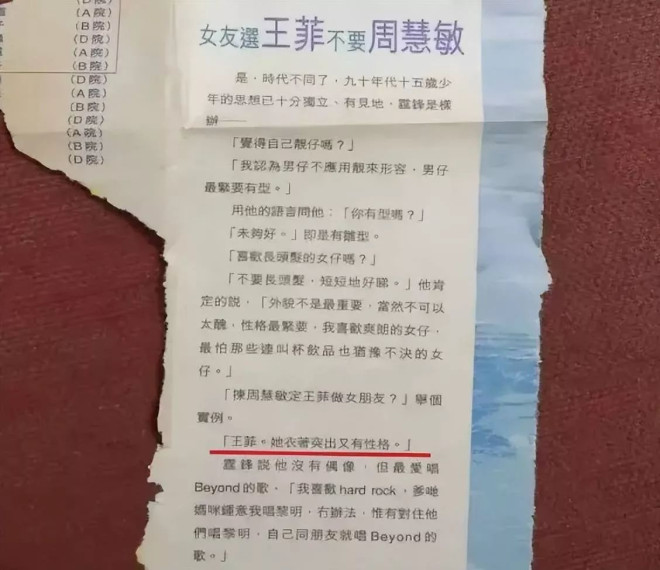 (D院)
(A院)
(B院)
(D院)
(A院)
(B院)
(D院)
(A院)
(B院)
(D院)
(A院)
(B院)
(D院)
女友選王菲不要周慧敏
是，時代不同了，九十年代十五歲少
年的思想已十分獨立、有見地，霆鋒是樣
辦——
「覺得自己靚仔嗎？」
「我認為男仔不應用靚來形容，男仔
最緊要有型。」
用他的語言問他：「你有型嗎？」
「未夠好。」即是有雛型。
「喜歡長頭髮的女仔嗎？」
「不要長頭髮，短短地好睇。」他肯
定的說，「外貌不是最重要，當然不可以
太醜，性格最緊要，我喜歡爽朗的女仔，
最怕那些連叫杯飲品也猶豫不決的女
仔。」
「揀周慧敏定王菲做女朋友？」舉個
實例。
「王菲。她衣著突出又有性格。」
霆鋒說他沒有偶像，但最愛唱
Beyond的歌，「我喜歡hard rock，爹哋
媽咪鍾意我唱黎明，冇辦法，惟有對住他
們唱黎明，自己同朋友就唱Beyond的
歌。」